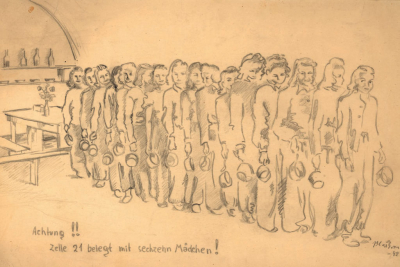 Achtung !!
Zelle 21 belegt mit sechzehn Mädchen !